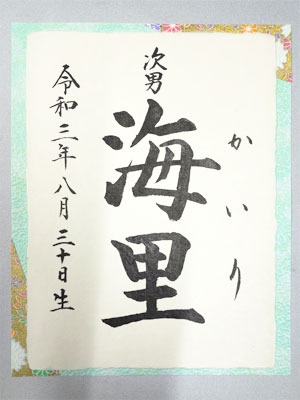 かいり
次男
海里
令和三年八月三十日生